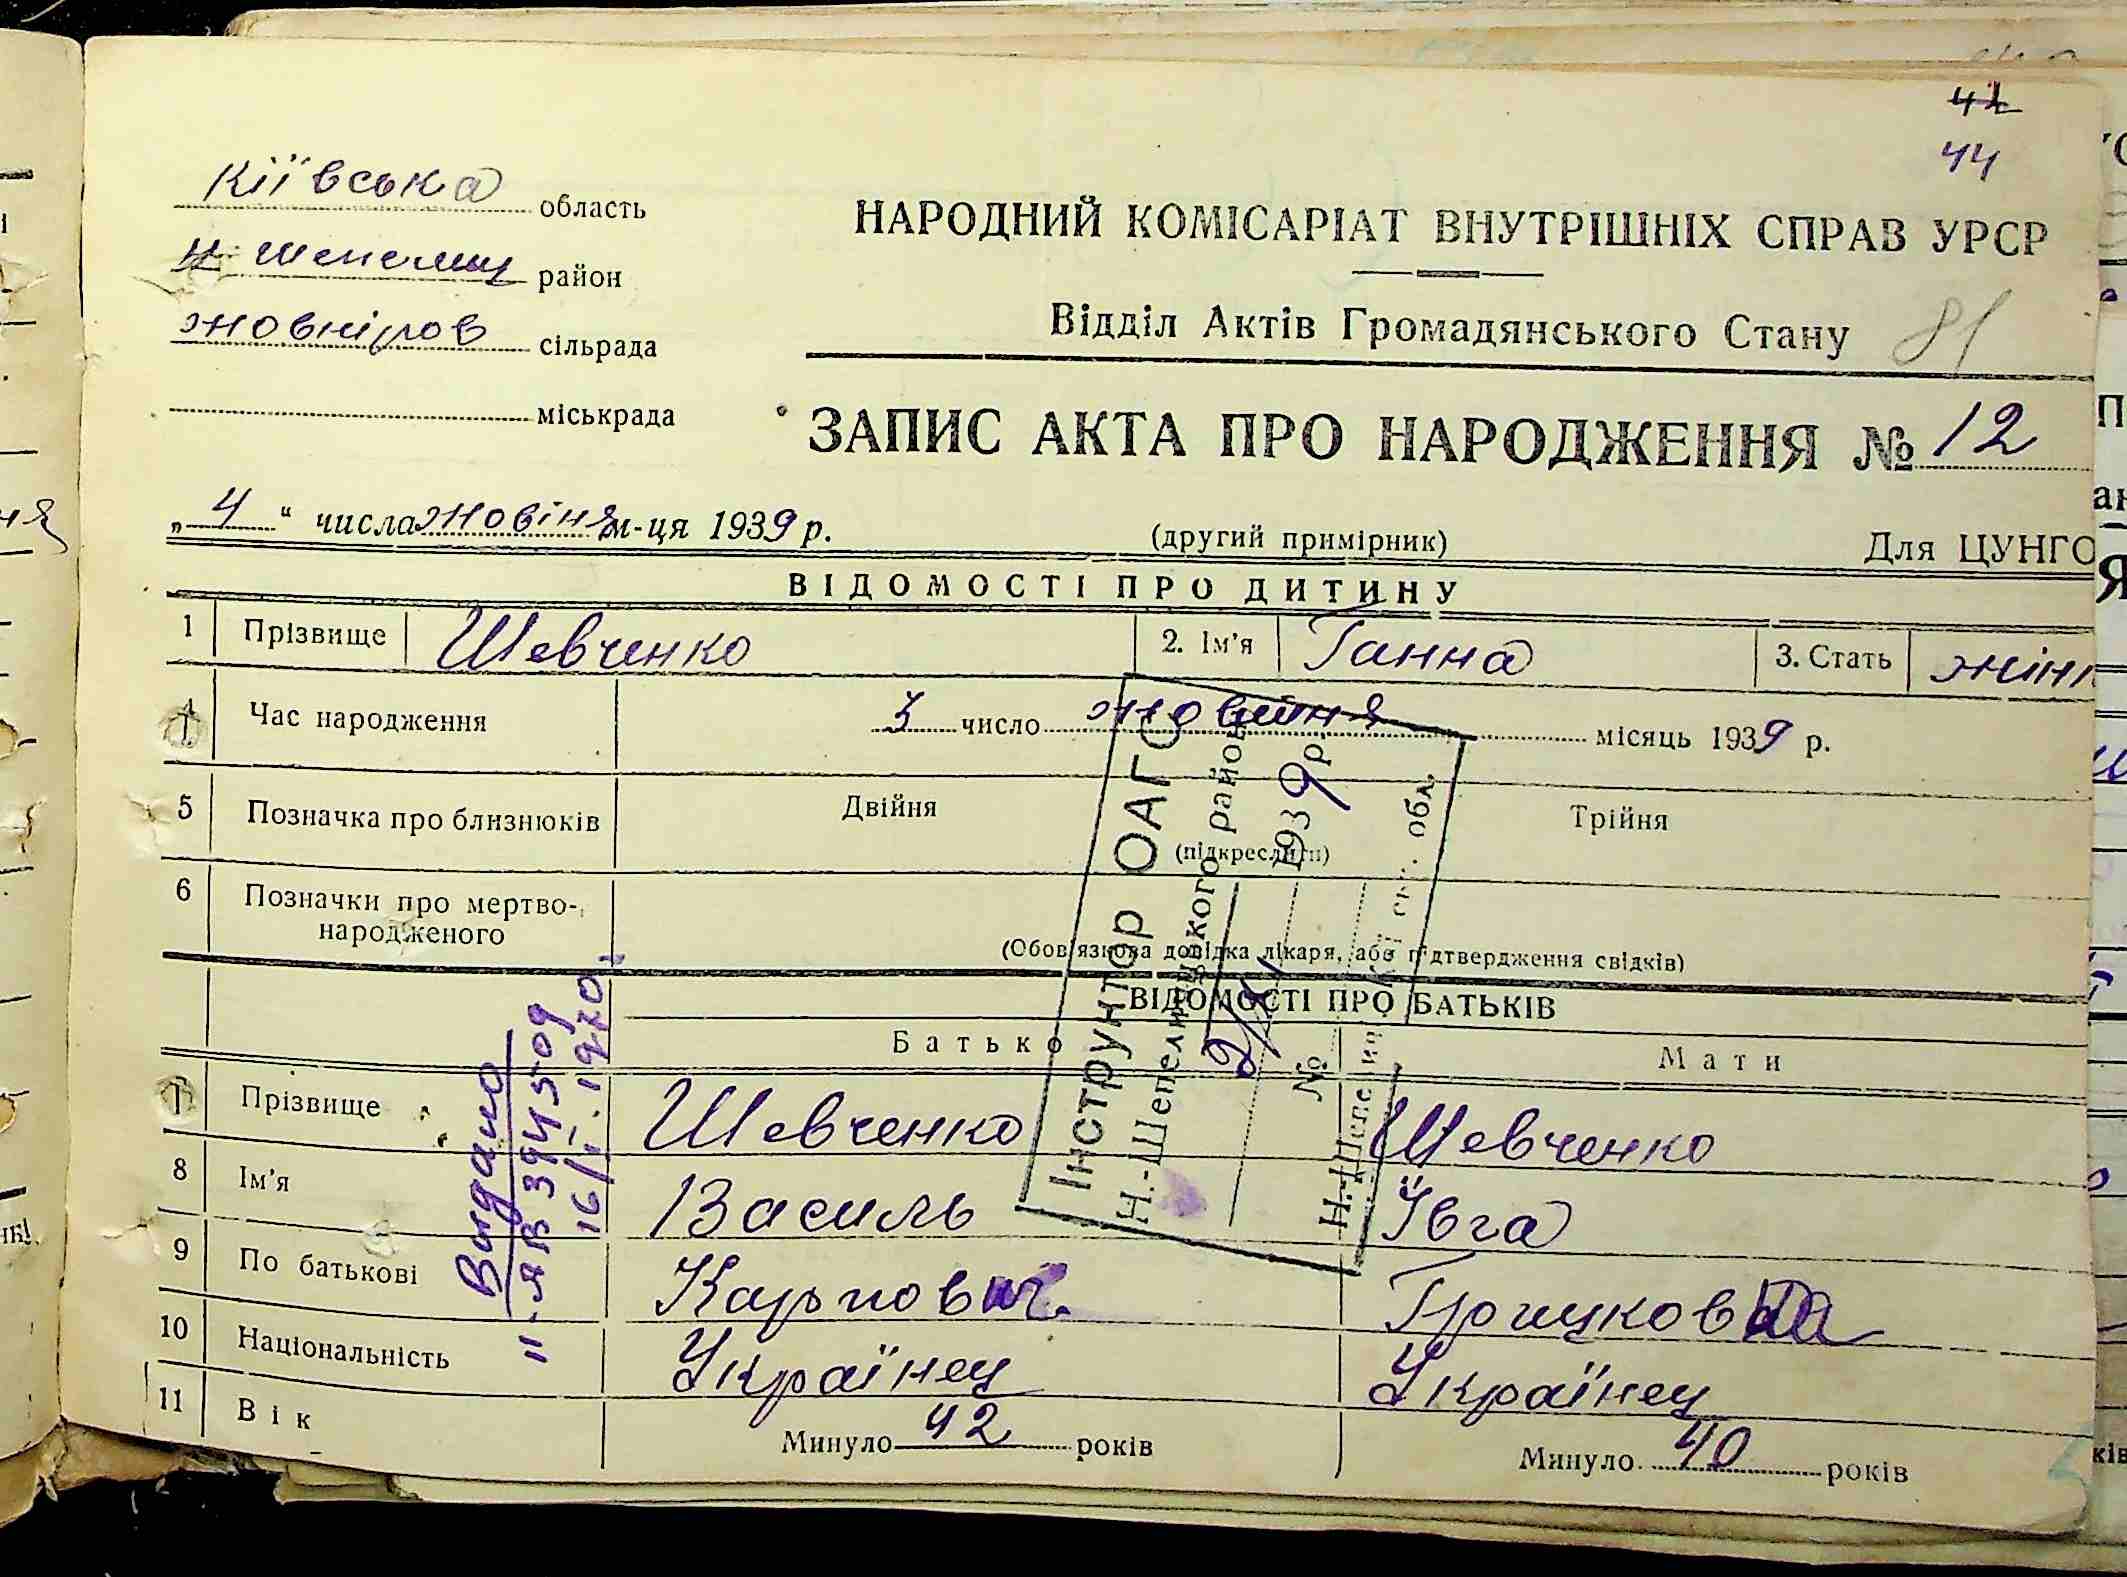 42
44
Кіївська область
Н-Шепелиц район
жовніров сільрада
міськрада
НАРОДНИЙ КОМІСАРІАТ ВНУТРІШНІХ СПРАВ УРСР
Відділ Актів Громадянського Стану 81
ЗАПИС АКТА ПРО НАРОДЖЕННЯ № 12
„ 4 “ числа жовіня м-ця 1939 р.
(другий примірник) Для ЦУНГО
ВІДОМОСТІ ПРО ДИТИНУ
1 Прізвище Шевченко 2. Ім'я Ганна 3. Стать жін
4 Час народження 3 число жовтня місяць 1939 р.
5 Позначка про близнюків Двійня Трійня
(підкреслити)
6 Позначки про мертво-
народженого
(Обов'язкова довідка лікаря, або підтвердження свідків)
ВІДОМОСТІ ПРО БАТЬКІВ
Батько Мати
7 Прізвище Шевченко Шевченко
8 Ім'я Василь Ївга
9 По батькові Карпович Грицковна
10 Національність Українец Українец
11 Вік Минуло 42 років Минуло 40 років
Видано
II-ЯВ 394509
16/I.1970
Інструктор ОАГС
Н.-Шепелицького району
1939 р.
№
обл.